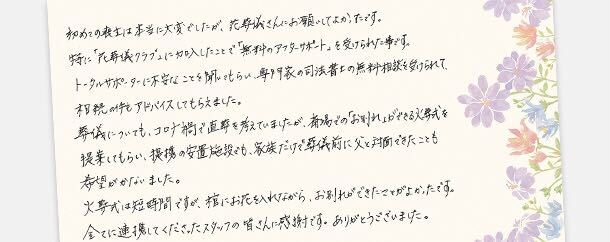 初めての喪主は本当に大変でしたが、花葬儀さんにお願いしてよかったです。
特に「花葬儀クラブ」に加入したことで「無料のアフターサポート」を受けられた事です。
トータルサポーターに不安なことを聞いてもらい、専門家の司法書士の無料相談を受けられて、
相続の件もアドバイスしてもらえました。
葬儀についても、コロナ禍で直葬を考えていましたが、斎場での「お別れ」ができる火葬式を
提案してもらい、提携の安置施設でも、家族だけで葬儀前に父と対面できたことも
希望がかないました。
火葬式は短時間ですが、棺にお花を入れながら、お別れができたことがよかったです。
全てに連携してくださったスタッフの皆さんに感謝です。ありがとうございました。